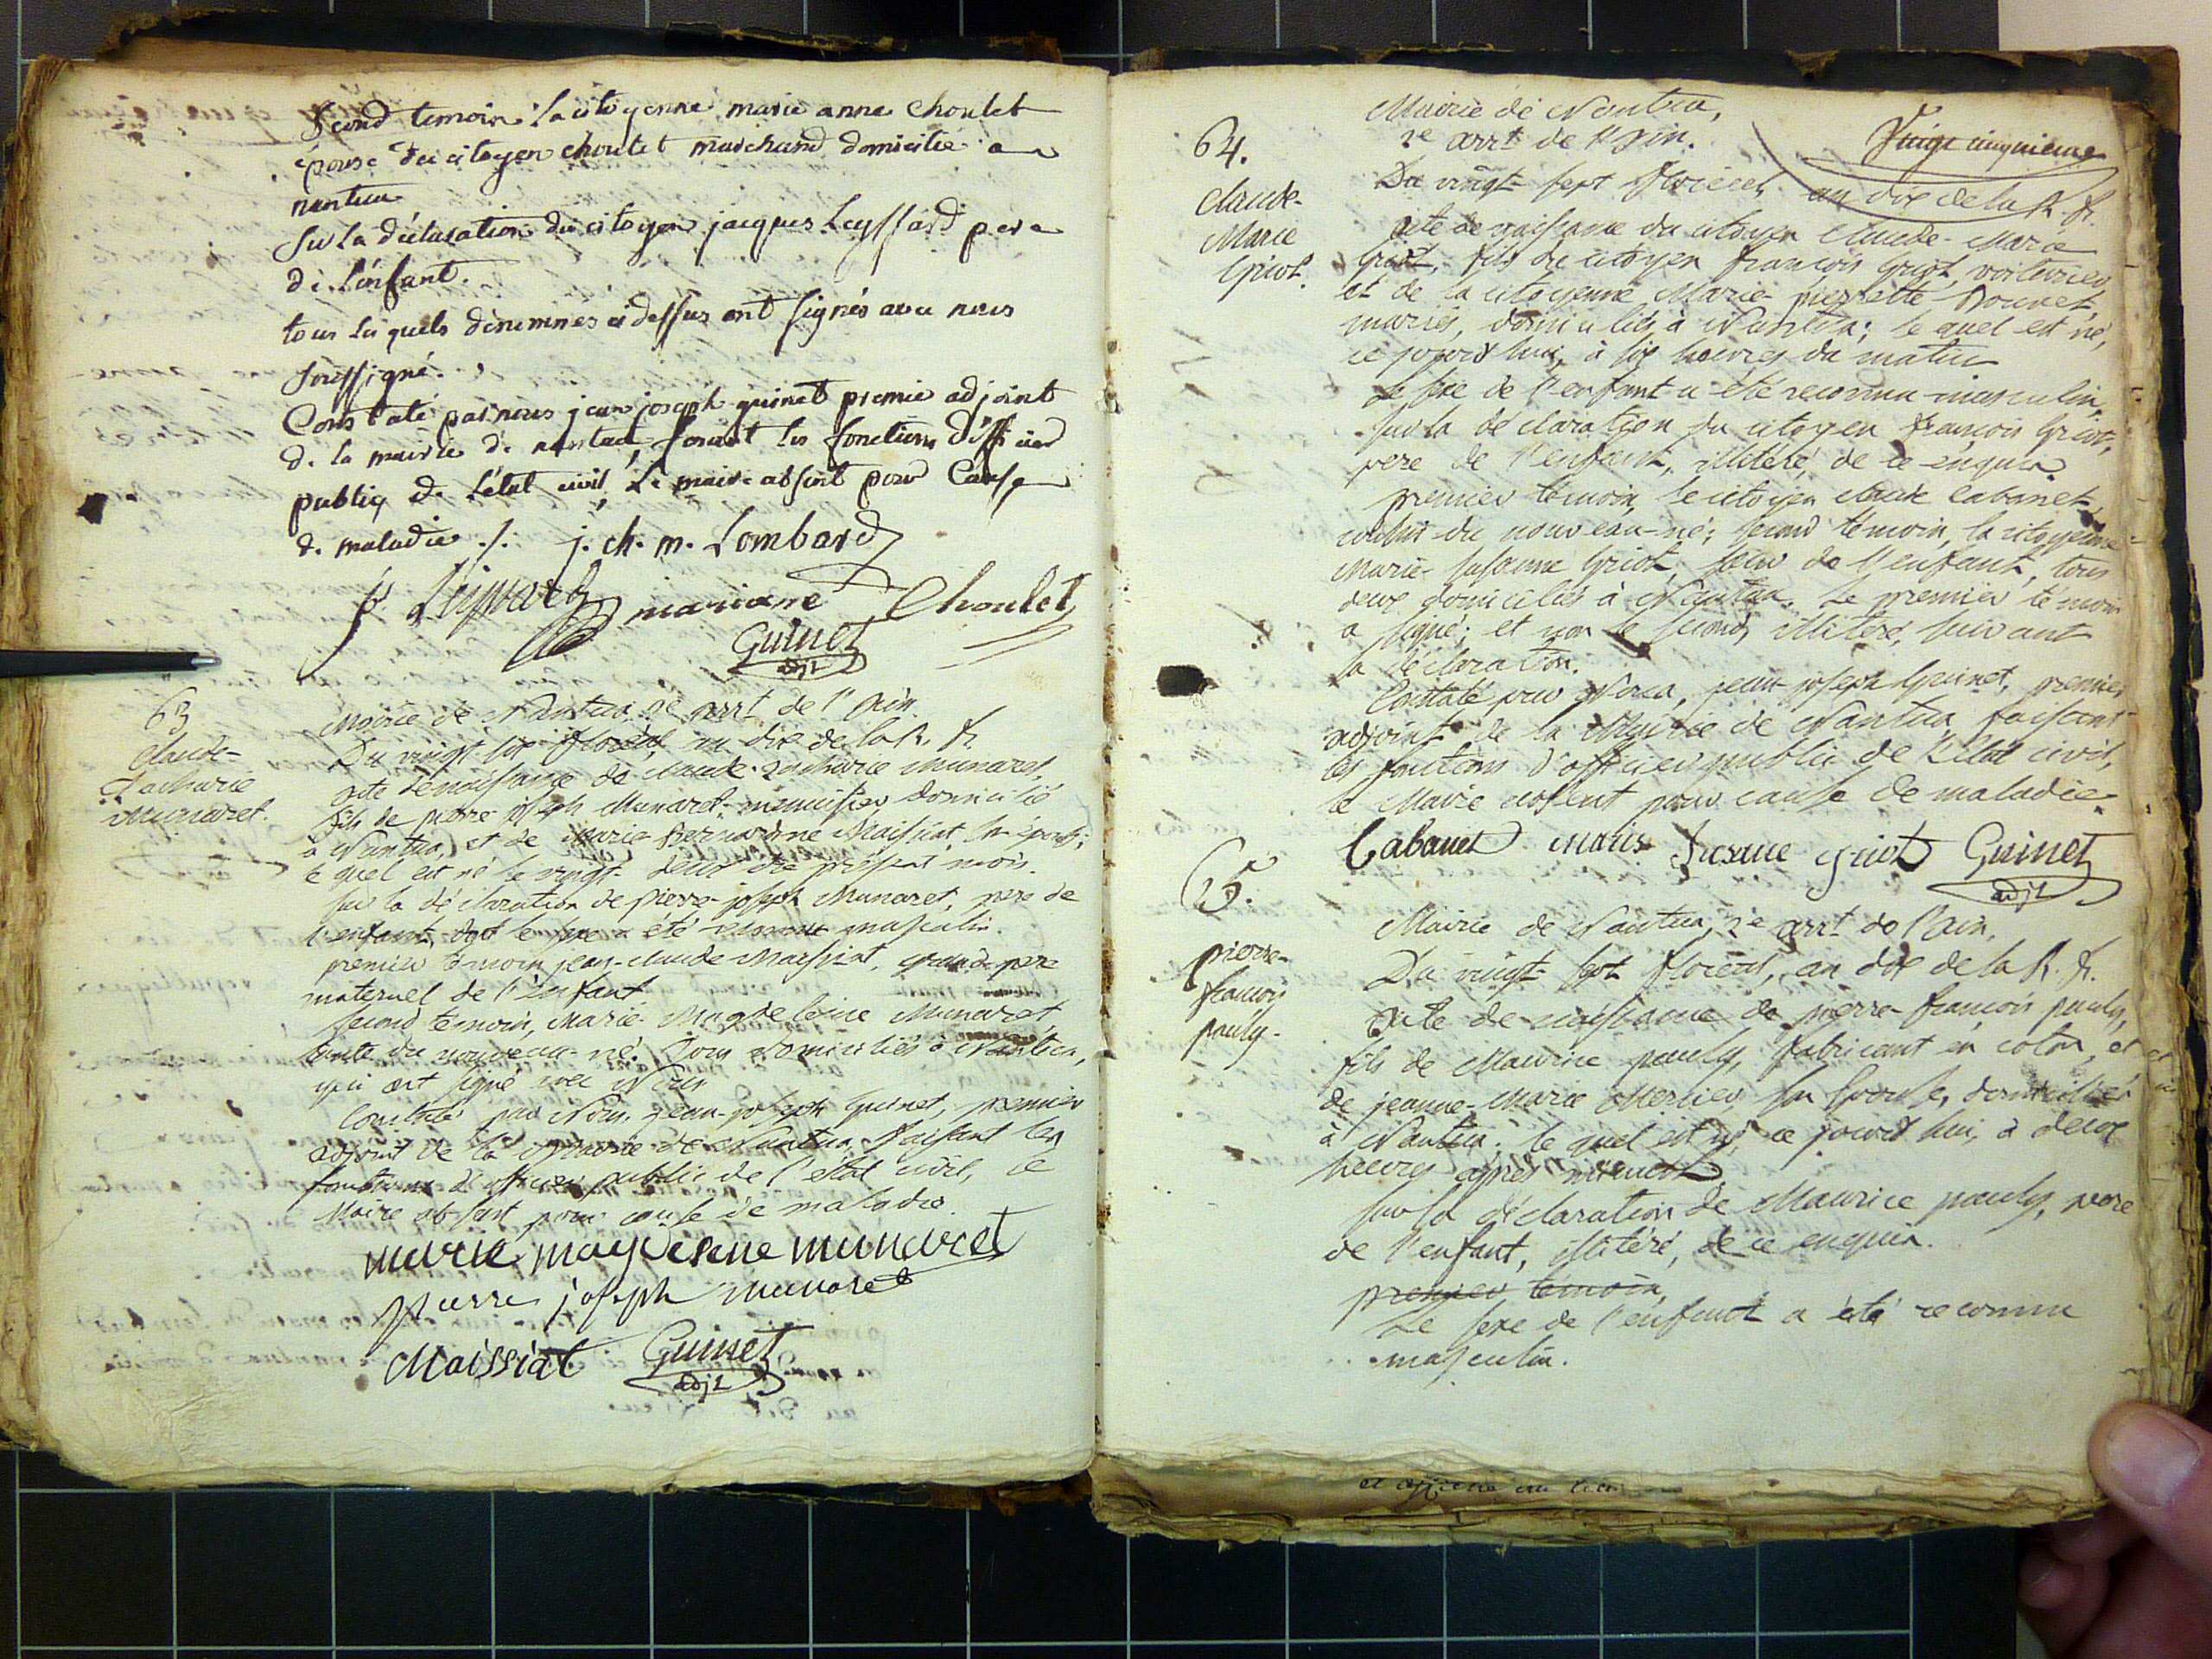 Second temoin la citoyenne marie anne Choulet
épouse du citoyen choulet marchand domicilié a
nantua
Sur la déclaration du citoyen jacques Leyssard pere
de L'enfant.
tous les quels dénommés ci dessus ont signés avec nous
Soussigné.
Constaté par nous jean joseph guinet premier adjoint
de la mairie de nantua, fesant les fonctions d'officier
public de L'état civil, Le maire absent pour Cause
de maladie ./. j. ch. m. Lombard
Leyssard mariane Choulet
Guinet
adjt
63
Claude-
Zacharie
Munaret.
Mairie de Nantua 2e arrt de l'Ain.
Du vingt six floréal an dix de la R. fr.
acte de naissance de Claude-Zacharie Munaret,
fils de pierre joseph Munaret, menuisier domicilié
à Nantua, et de Marie Bernardine Maissiat, son épouse;
le quel est né le vingt-deux du présent mois.
Sur la déclaration de pierre-joseph Munaret, pere de
l'enfant, dont le sexe a été reconnu masculin.
premier témoin jean-claude Maissiat, grand-pere
maternel de l'enfant
second témoin, Marie-Magdeleine Munaret
tante du nouveau-né. Tous domiciliés à Nantua,
qui ont signé avec Nous
Constaté par Nous, jean-joseph Guinet, premier
adjoint de la Mairie de Nantua, faisant les
fonctions d'officier public de l'état civil, le
Maire absent pour cause de maladie.
marie magdeleine munaret
pierre joseph munaret
Maissiat Guinet
adjt
64.
Claude-
Marie
Griot.
Mairie de Nantua,
2e arrt de l'Ain.
Vingt cinquieme
Du vingt-sept floréal an dix de la R. fr.
acte de naissance du citoyen Claude-Marie
Griot, fils du citoyen françois Griot, voiturier
et de la citoyenne Marie-pierrette
mariés, domiciliés à Nantua; le quel est né,
ce jourd'hui, à six heures du matin
Le sexe de l'enfant a été reconnu masculin,
sur la déclaration du citoyen françois Griot,
pere de l'enfant, illitéré, de ce enquis
premier témoin, le citoyen claude Cabanet,
cousin du nouveau-né; second témoin, la citoyenne
Marie-Susanne Griot, soeur de l'enfant, tous
deux domiciliés à Nantua. Le premier témoin
a signé; et non le second, illitéré, suivant
sa déclaration.
Constaté par Nous, jean-joseph Guinet, premier
adjoint de la Mairie de Nantua, faisant
les fonctions d'officier public de l'état civil,
le Maire absent pour cause de maladie.
Cabanet marie Susane griot Guinet
adjt
65.
pierre-
françois
pauly.
Mairie de Nantua, 2e arrt de l'Ain.
Du vingt-sept floréal, an dix de la R. fr.
acte de naissance de pierre-françois pauly,
fils de Maurice pauly, fabricant en coton, et
de jeanne-Marie Mercier, son épouse, domiciliés
à Nantua: le quel est né ce jourd'hui, à deux
heures après minuit.
Sur la déclaration de Maurice pauly, pere
de l'enfant, illitéré, de ce enquis.
premier témoin,
Le sexe de l'enfant a été reconnu
masculin.